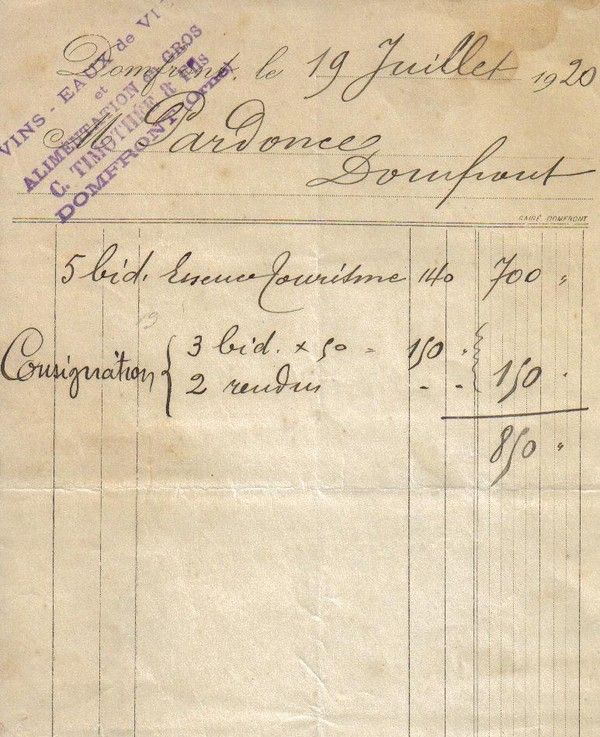 VINS - EAUX de VI
et
ALIMENTATION en GROS
C. TIMOTHÉE & FILS
DOMFRONT (Orne)
Domfront, le 19 Juillet 1920
M Pardonce
Domfront
CAIRÉ DOMFRONT
5 bid. Essence Tourisme 140 700 "
Consignation { 3 bid. x 50 = 150 "
2 rendus - - 150 "
850 "